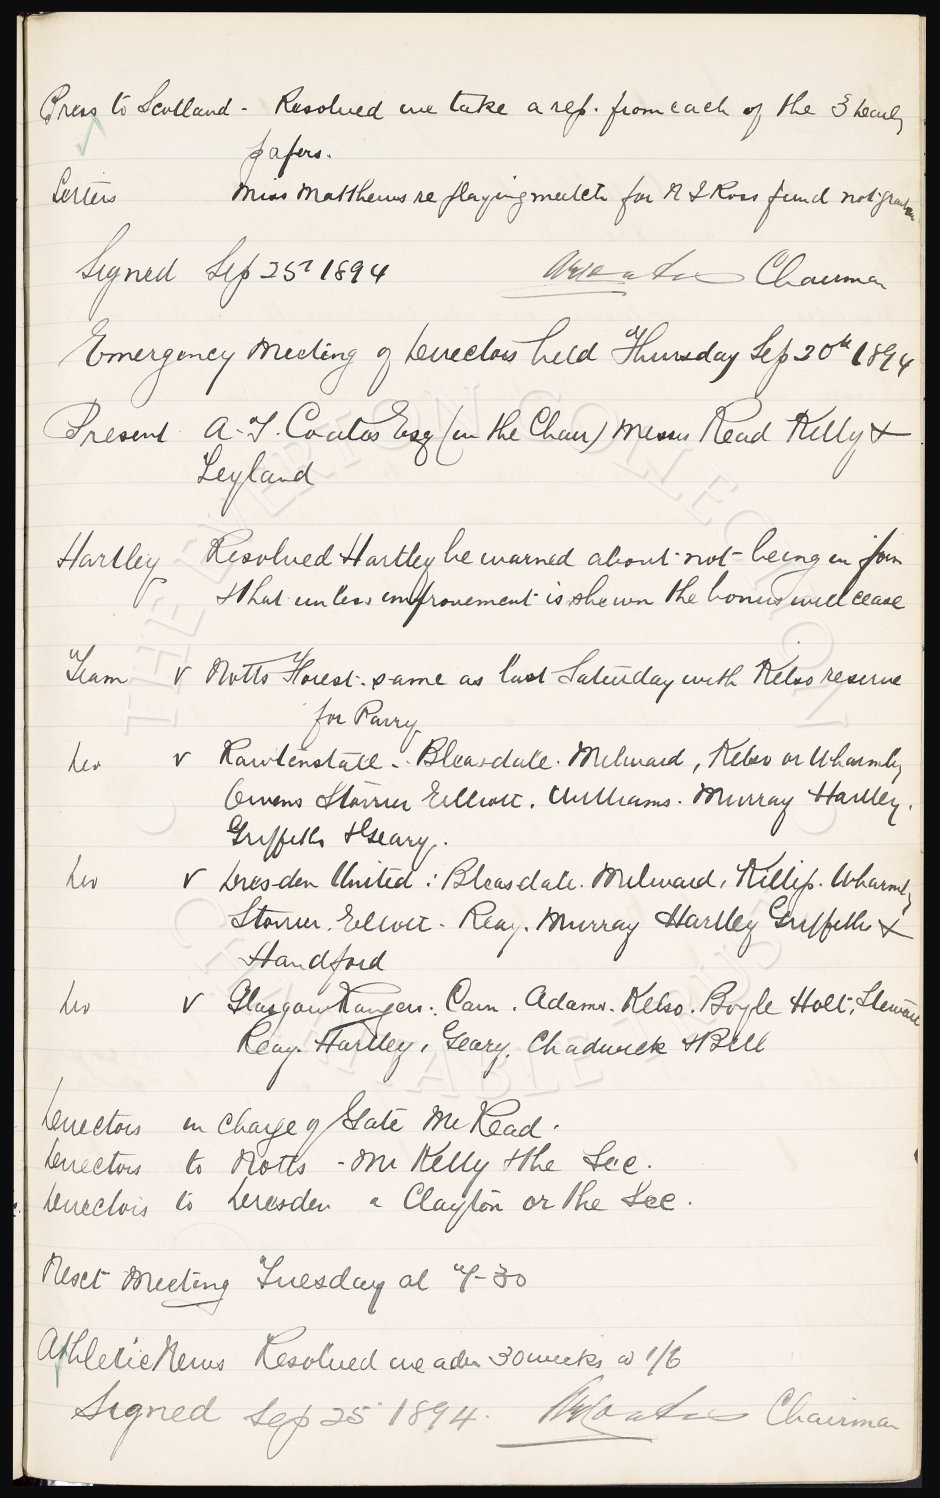 Press to Scotland - Resolved we take a rep. from each of the 3 hearly
papers.
Letters Miss Matthews re playing match for N J Ross fund not granted
Signed Sep 25th 1894 Chairman
Emergency Meeting of Directors held Thursday Sep 20th 1894
Present A. T. Coates Esq (in the Chair) Messrs Read Kelly &
Leyland
Hartley Resolved Hartley be warned about not being in form
& that unless improvement is shewn the bonus will cease
Team v Notts Forest. same as last Saturday with Kelso reserve
for Parry
Do v Rawtenstall. Bleasdale. Milward, Kelso or Wharmby
Owens Storrier Elliott. Williams. Murray Hartley.
Griffiths & Geary.
Do v Dresden United: Bleasdale. Milward, Killip. Wharmby
Storrier. Elliott. Reay. Murray Hartley Griffiths &
Handford
Do v Glasgow Rangers. Cain. Adams. Kelso. Boyle Holt, Stewart
Reay. Hartley, Geary, Chadwick & Bell
Directors in charge of Gate Mr Read.
Directors to Notts - Mr Kelly & the Sec.
Directors to Dresden " Clayton or the Sec.
Next Meeting Tuesday at 7-30
Athletic News Resolved we adv 30 weeks @ 1/6
Signed Sep 25 1894. Chairman
THE EVERTON COLLECTION
CHARITABLE TRUST